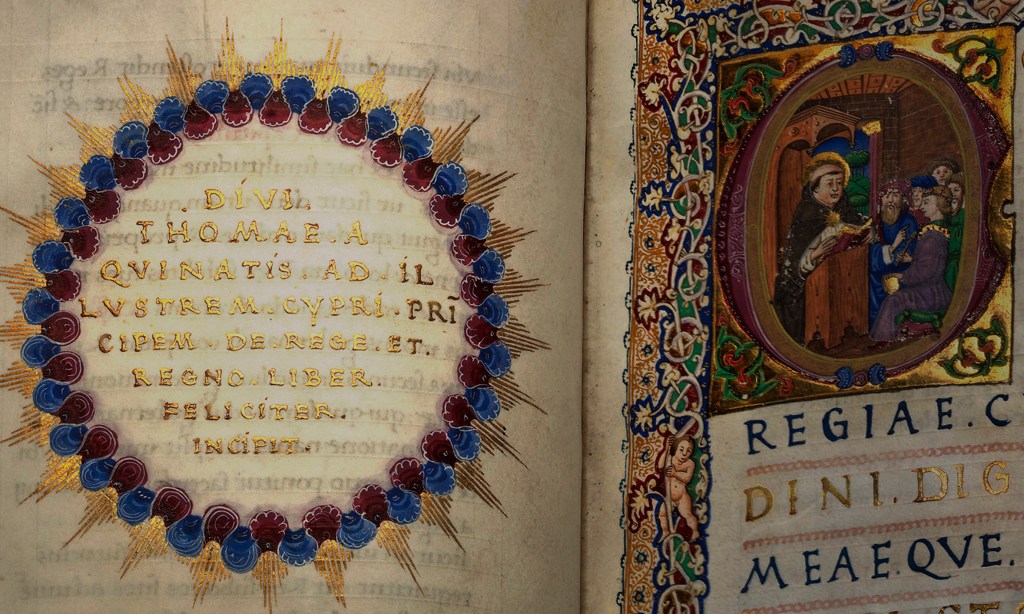 .DÍVI
THOMAE.A
QVINATÍS AD ÍL
LVSTREM.CYPRÍ.PRĪ
CIPEM DE.REGE.ET.
REGNO LIBER.
FELICÍTER.
INCÍPIT.
REGIAE.C
DINI.DIG
MEAEQVE.